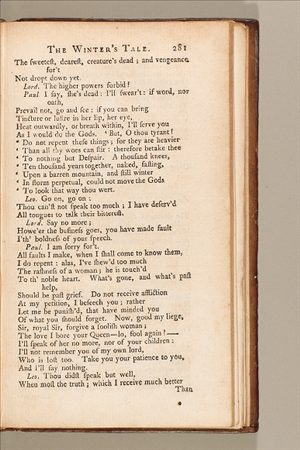 THE WINTER'S TALE. 281
The sweetest, dearest, creature's dead; and vengeance
for't
Not dropt down yet.
Lord. The higher powers forbid!
Paul. I say, she's dead: I'll swear't: if word, nor
oath,
Prevail not, go and see: if you can bring
Tincture or lustre in her lip, her eye,
Heat outwardly, or breath within, I'll serve you
As I would do the Gods. ‘ But, O thou tyrant!
‘ Do not repent these things; for they are heavier
‘ Than all thy woes can stir: therefore betake thee
‘ To nothing but Despair. A thousand knees,
‘ Ten thousand years together, naked, fasting,
‘ Upon a barren mountain, and still winter
‘ In storm perpetual, could not move the Gods
‘ To look that way thou wert.
Leo. Go on, go on:
Thou can'st not speak too much; I have deserv'd
All tongues to talk their bitterest.
Lord. Say no more;
Howe'er the business goes, you have made fault
I'th' boldness of your speech.
Paul. I am sorry for't.
All faults I make, when I shall come to know them,
I do repent: alas, I've shew'd too much
The rashness of a woman; he is touch'd
To th' noble heart. What's gone, and what's past
help,
Should be past grief. Do not receive affliction
At my petition, I beseech you; rather
Let me be punish'd, that have minded you
Of what you should forget. Now, good my liege,
Sir, royal Sir, forgive a foolish woman;
The love I bore your Queen—lo, fool again!—
I'll speak of her no more, nor of your children:
I'll not remember you of my own lord,
Who is lost too. Take you your patience to you,
And I'll say nothing.
Leo. Thou didst speak but well,
When most the truth; which I receive much better
Than